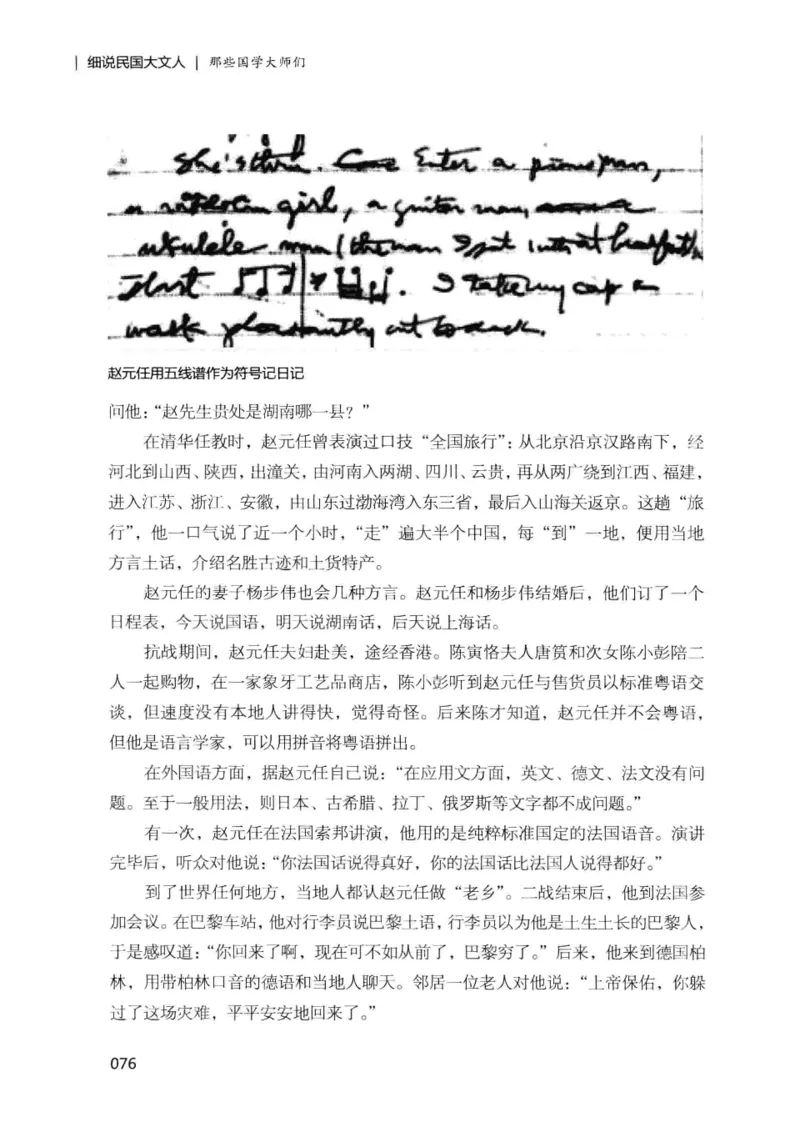 细说民国大文人 | 那些国学大师们
She's thin. Enter a piano man,
girl, a guitar man, a
ukulele man (the man I put at breakfast),
I take my cap
walk pleasantly out
赵元任用五线谱作为符号记日记
问他：“赵先生贵处是湖南哪一县？”
在清华任教时，赵元任曾表演过口技“全国旅行”：从北京沿京汉路南下，经
河北到山西、陕西，出潼关，由河南入两湖、四川、云贵，再从两广绕到江西、福建，
进入江苏、浙江、安徽，由山东过渤海湾入东三省，最后入山海关返京。这趟“旅
行”，他一口气说了近一个小时，“走”遍大半个中国，每“到”一地，便用当地
方言土话，介绍名胜古迹和土货特产。
赵元任的妻子杨步伟也会几种方言。赵元任和杨步伟结婚后，他们订了一个
日程表，今天说国语，明天说湖南话，后天说上海话。
抗战期间，赵元任夫妇赴美，途经香港。陈寅恪夫人唐筼和次女陈小彭陪二
人一起购物，在一家象牙工艺品商店，陈小彭听到赵元任与售货员以标准粤语交
谈，但速度没有本地人讲得快，觉得奇怪。后来陈才知道，赵元任并不会粤语，
但他是语言学家，可以用拼音将粤语拼出。
在外国语方面，据赵元任自己说：“在应用文方面，英文、德文、法文没有问
题。至于一般用法，则日本、古希腊、拉丁、俄罗斯等文字都不成问题。”
有一次，赵元任在法国索邦讲演，他用的是纯粹标准国定的法国语音。演讲
完毕后，听众对他说：“你法国话说得真好，你的法国话比法国人说得都好。”
到了世界任何地方，当地人都认赵元任做“老乡”。二战结束后，他到法国参
加会议。在巴黎车站，他对行李员说巴黎土语，行李员以为他是土生土长的巴黎人，
于是感叹道：“你回来了啊，现在可不如从前了，巴黎穷了。”后来，他来到德国柏
林，用带柏林口音的德语和当地人聊天。邻居一位老人对他说：“上帝保佑，你躲
过了这场灾难，平平安安地回来了。”
076